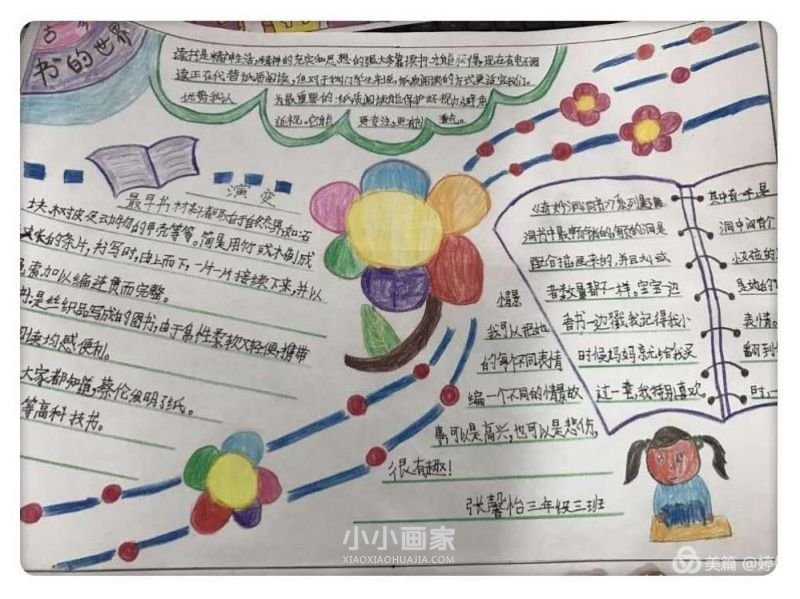 书的世界
读书是精神生活,精神的充实和思想的强大多靠读书才能获得,现在有电子阅
读正在代替纸质阅读,但对于我们学生来说,纸质阅读的方式更适宜我们。
优势我认 为最重要的:纸质阅读能保护好视力,避免
近视。它能 更专注,更有
演变
最早书材料都取自于自然界,如石
块、树皮及动物的甲壳等等。简是用竹或木制成
的条片,书写时,由上而下,一片一片接续下来,并以
绳索加以编连贯而完整。
书:是丝织品写成的图书,由于帛性柔软又轻便,携带
阅读均感便利。
大家都知道,蔡伦发明了纸。
等高科技书。
《奇妙洞洞书》系列是
洞书中最
配合插画来的,并且
者数量都不一样。宝宝一边
看书一边戳,我记得我小
时候妈妈
过一套,我特别喜欢
其中有一本是
洞中间有个
是她的
表情。
翻到
时,一
情景
我可以把她
的每个不同表情
编一个不同的情景故
事可以是高兴,也可以是悲伤,
很有趣!
张馨怡三年级三班
小小画家
XIAOXIAOHUAJIA.COM
美篇 @婷